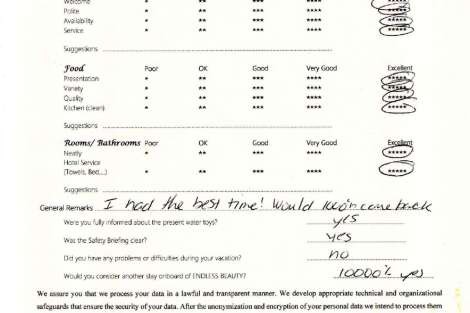 Welcome * ** *** **** *****
Polite * ** *** **** *****
Availability * ** *** **** *****
Service * ** *** **** *****
Suggestions
Food Poor OK Good Very Good Excellent
Presentation * ** *** **** *****
Variety * ** *** **** *****
Quality * ** *** **** *****
Kitchen (clean) * ** *** **** *****
Suggestions
Rooms/ Bathrooms Poor OK Good Very Good Excellent
Neatly * ** *** **** *****
Hotel Service
(Towels, Bed,...) * ** *** **** *****
Suggestions
General Remarks I had the best time! Would come back
Were you fully informed about the present water toys? yes
Was the Safety Briefing clear? yes
Did you have any problems or difficulties during your vacation? no
Would you consider another stay onboard of ENDLESS BEAUTY? 10000% yes
We assure you that we process your data in a lawful and transparent manner. We develop appropriate technical and organizational
safeguards that ensure the security of your data. After the anonymization and encryption of your personal data we intend to process them